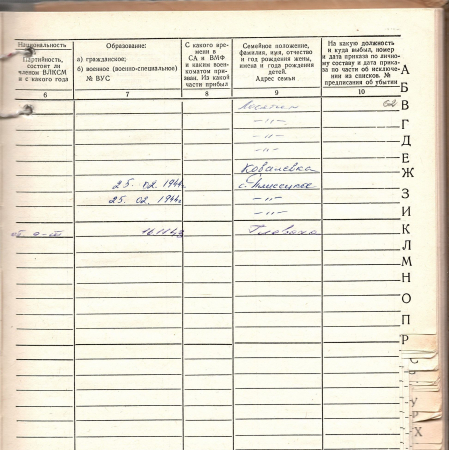 Национальность
Партийность,
состоит ли
членом ВЛКСМ
и с какого года
Образование:
а) гражданское;
б) военное (военно-специальное)
№ ВУС
С какого вре-
мени в
СА и ВМФ
и каким воен-
коматом при-
зван. Из какой
части прибыл
Семейное положение,
фамилия, имя, отчество
и год рождения жены,
имена и год рождения
детей.
Адрес семьи
На какую должность
и куда выбыл, номер
и дата приказа по лично-
му составу и дата прика-
за по части об исключе-
нии из списков. №
предписания об убытии
6 7 8 9 10
—"—
—"—
—"—
Ковалевка
25. 02. 1944г
25. 02. 1944г —"—
—"—
А
Б
В
Г
Д
Е
Ж
З
И
К
Л
М
Н
О
П
Р
С
У
Х